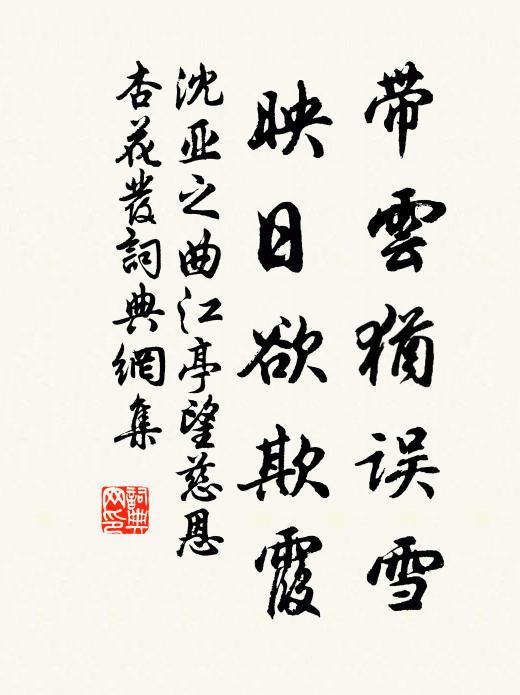 带雲猶误雪
映日欲欺霞
沈亚之曲江亭望慈恩
杏花發詞典網集
詞典网印